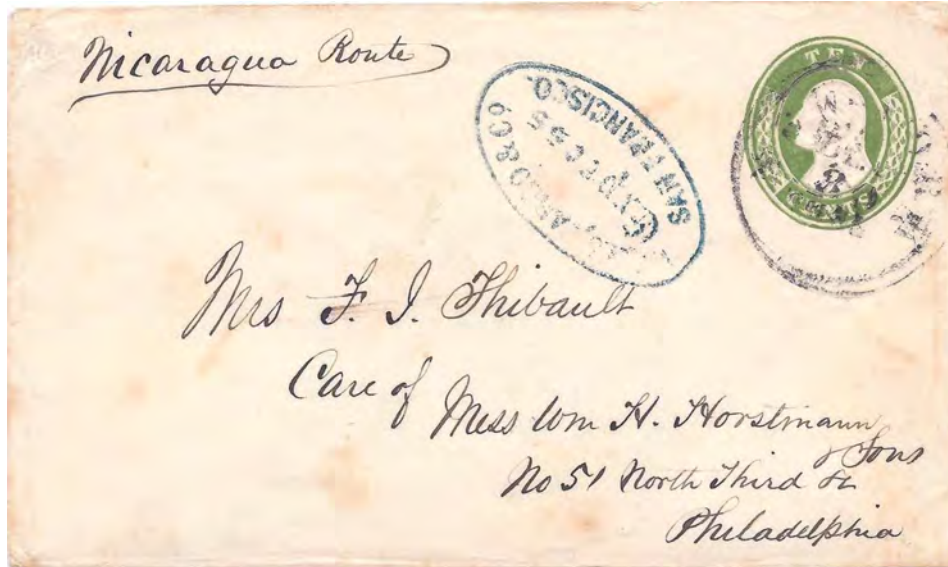 Nicaragua Route
TEN
CENTS
& Co
EXP DEC 55
SAN FRANCISCO.
Mrs F. J. Thibault
Care of
Mess Wm H. Horstmann
& Sons
No 51 North Third St
Philadelphia